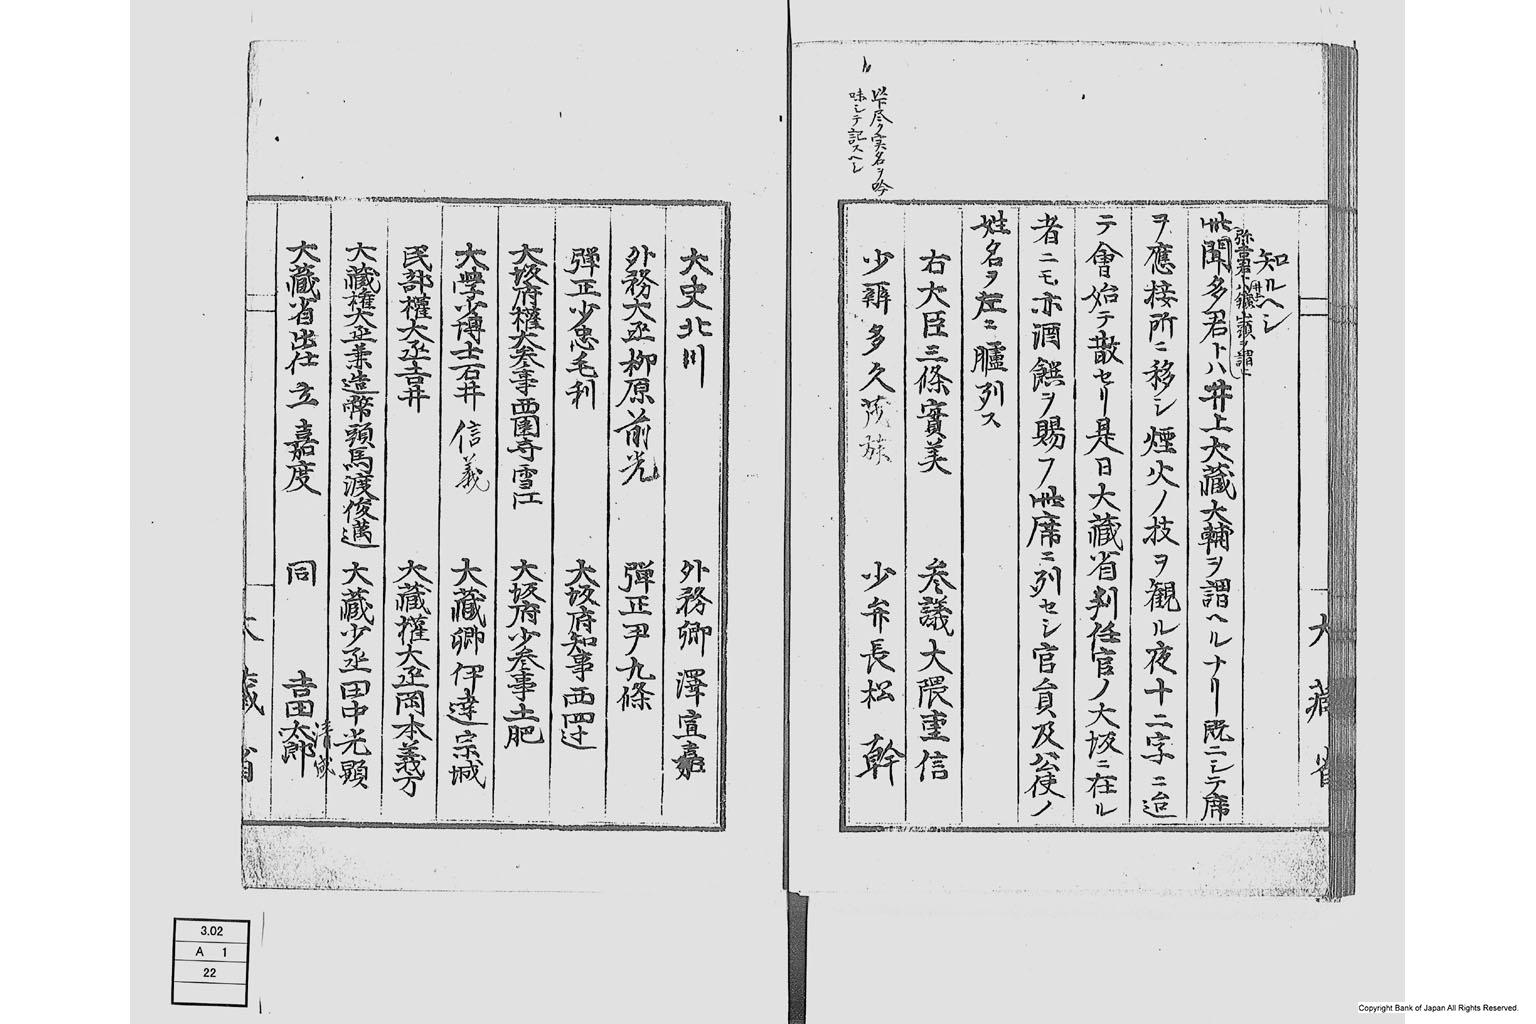 大藏省
知ルヘシ
此聞多君トハ井上大藏大輔ヲ謂ヘルナリ既ニシテ席
ヲ應接所ニ移シ煙火ノ技ヲ観ル夜十二字ニ迨
テ會始テ散セリ是日大藏省判任官ノ大坂ニ在ル
者ニモ亦酒饌ヲ賜フ此席ニ列セシ官員及公使ノ
姓名ヲ左ニ臚列ス
右大臣三條實美 参議大隈重信
少辨多久茂族 少弁長松幹
以下尽ク実名ヲ吟
味シテ記スヘシ
大史北川 外務卿澤宣嘉
外務大丞柳原前光 彈正尹九條
彈正少忠毛利 大坂府知事西四辻
大坂府權大参事西園寺雪江 大坂府少参事土肥
大學少博士石井信義 大藏卿伊達宗城
民部權大丞吉井 大藏權大丞岡本義方
大藏權大丞兼造幣頭馬渡俊邁 大藏少丞田中光顕
大藏省出仕立嘉度 同 吉田太郎
清成
大藏省
3.02
A 1
22
Copyright Bank of Japan All Rights Reserved.